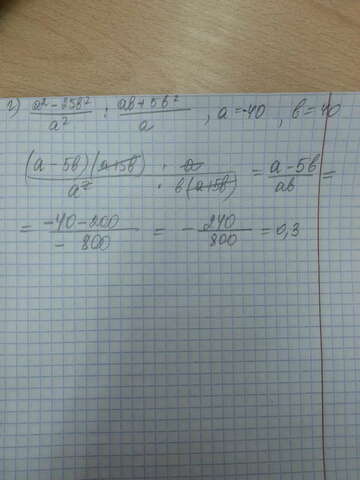 г) (a² - 25b²)/a² : (ab + 5b²)/a , a = -40 , b = 40
(a - 5b)(a+5b)/a² · a/(b(a+5b)) = (a - 5b)/(ab) =
= (-40 - 200)/(- 800) = - 240/800 = 0,3